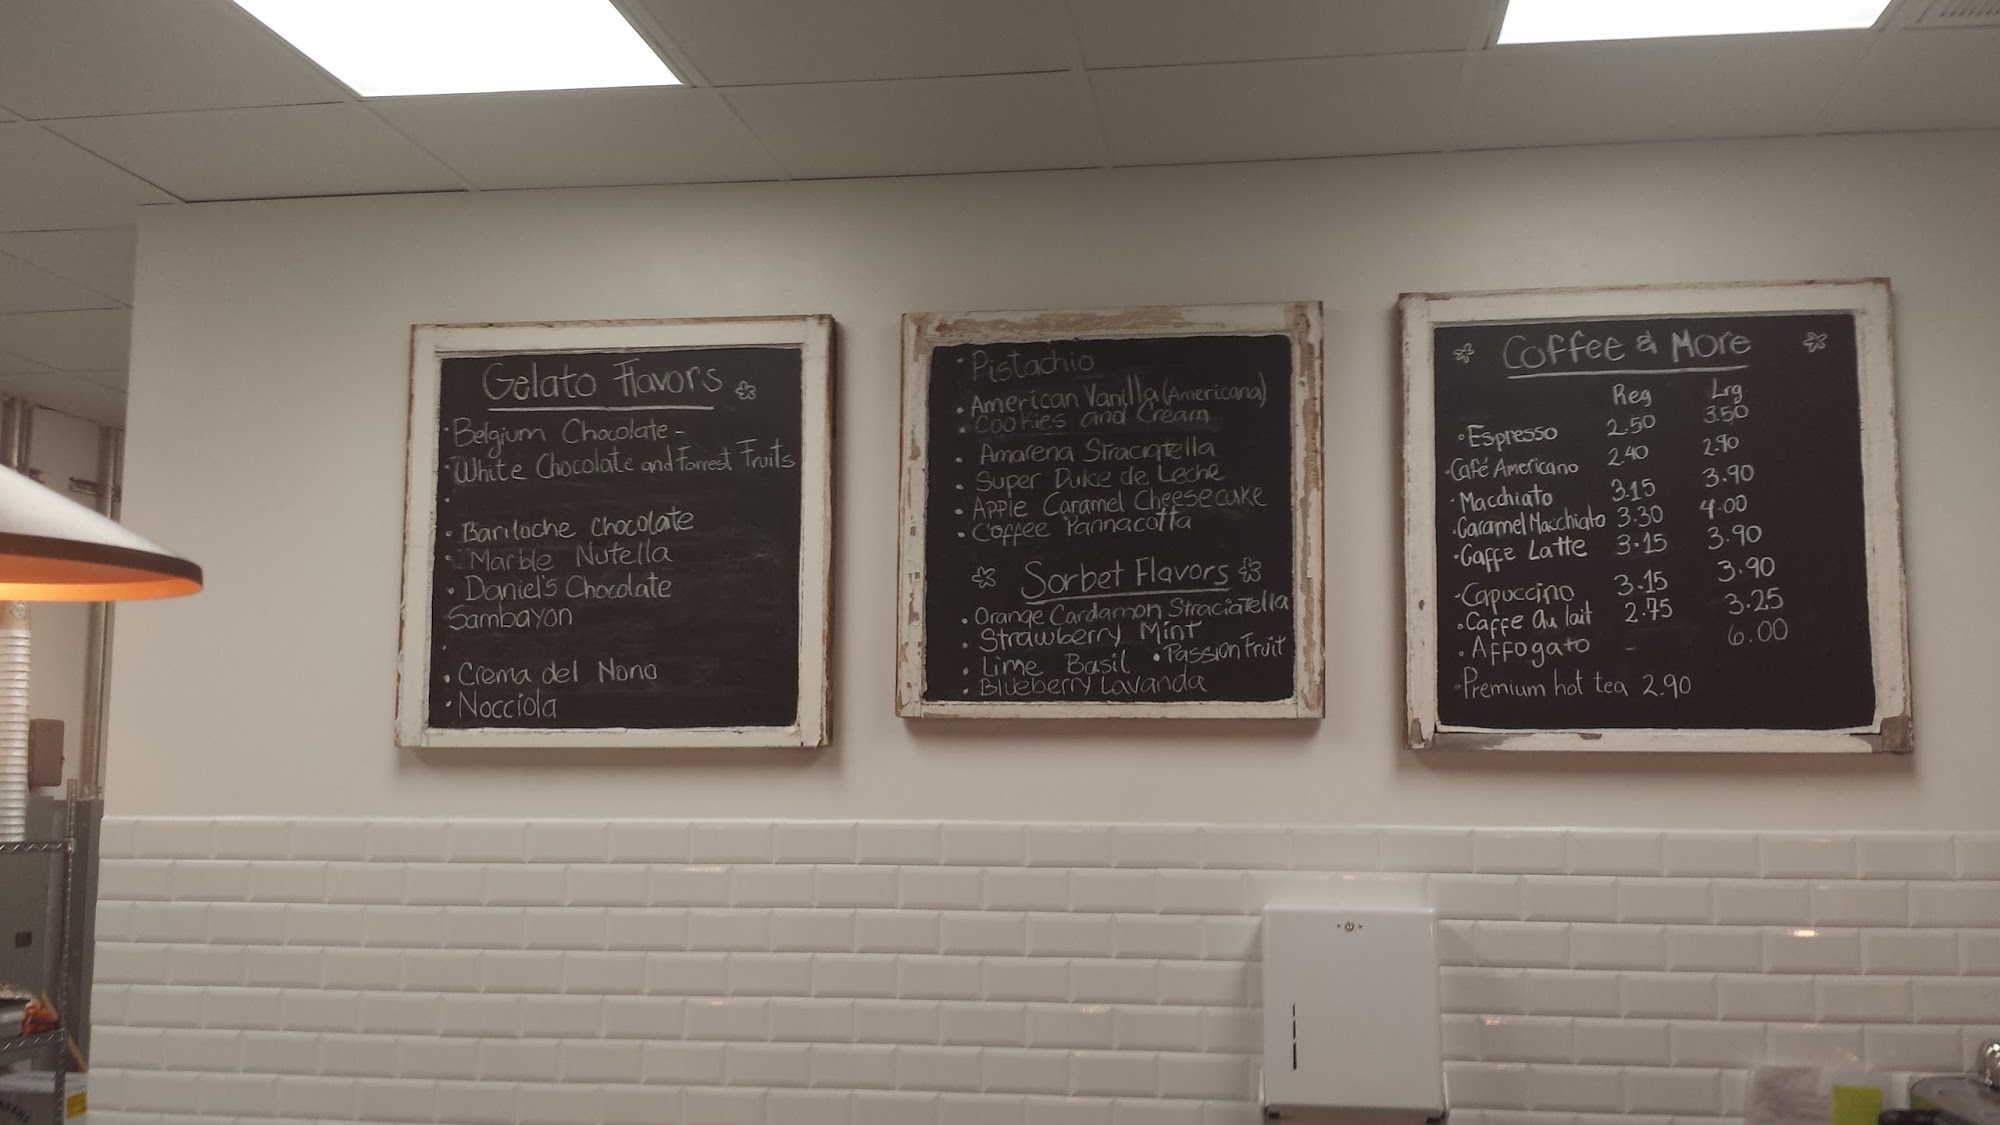 Gelato Flavors
• Belgium Chocolate -
• White Chocolate and Forrest Fruits
•
• Bariloche chocolate
• Marble Nutella
• Daniel's Chocolate
Sambayon
•
• Crema del Nono
• Nocciola
• Pistachio
• American Vanilla (Americana)
• Cookies and Cream
• Amarena Straciatella
• Super Dulce de Leche
• Apple Caramel Cheesecake
• Coffee Pannacotta
Sorbet Flavors
• Orange Cardamon Straciatella
• Strawberry Mint
• Lime Basil • Passion Fruit
• Blueberry Lavanda
Coffee & More
Reg Lrg
• Espresso 2.50 3.50
• Café Americano 2.40 2.90
• Macchiato 3.15 3.90
• Caramel Macchiato 3.30 4.00
• Caffe Latte 3.15 3.90
• Capuccino 3.15 3.90
• Caffe Au lait 2.75 3.25
• Affogato - 6.00
• Premium hot tea 2.90